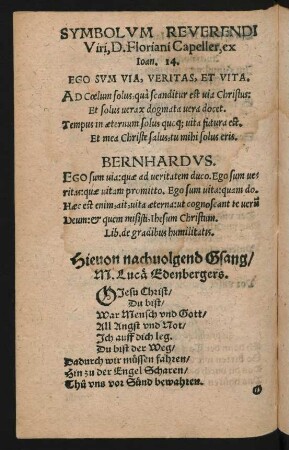 SYMBOLVM REVERENDI
Viri, D. Floriani Capeller, ex
Ioan. 14.
EGO SVM VIA, VERITAS, ET VITA.
AD Cœlum solus: quà scanditur est uia Christus:
Et solus uerax dogmata uera docet.
Tempus in æternum solus quoq; uita futura est.
Et mea Christe salus: tu mihi solus eris.
BERNHARDVS.
EGO sum uia: quæ ad ueritatem duco. Ego sum ue=
ritas: quæ uitam promitto. Ego sum uita: quam do.
Hæc est enim: ait: uita æterna: ut cognoscant te verū
Deum: & quem misisti: Ihesum Christum.
Lib. de gradibus humilitatis.
Hieuon nachuolgend Gsang/
M. Lucā Edenbergers.
O Jesu Christ/
Du bist/
War Mensch vnd Gott/
All Angst vnd Not/
Ich auff dich leg.
Du bist der Weg/
Dadurch wir müssen fahren/
Hin zu der Engel Scharen/
Thů vns vor Sünd bewahren.